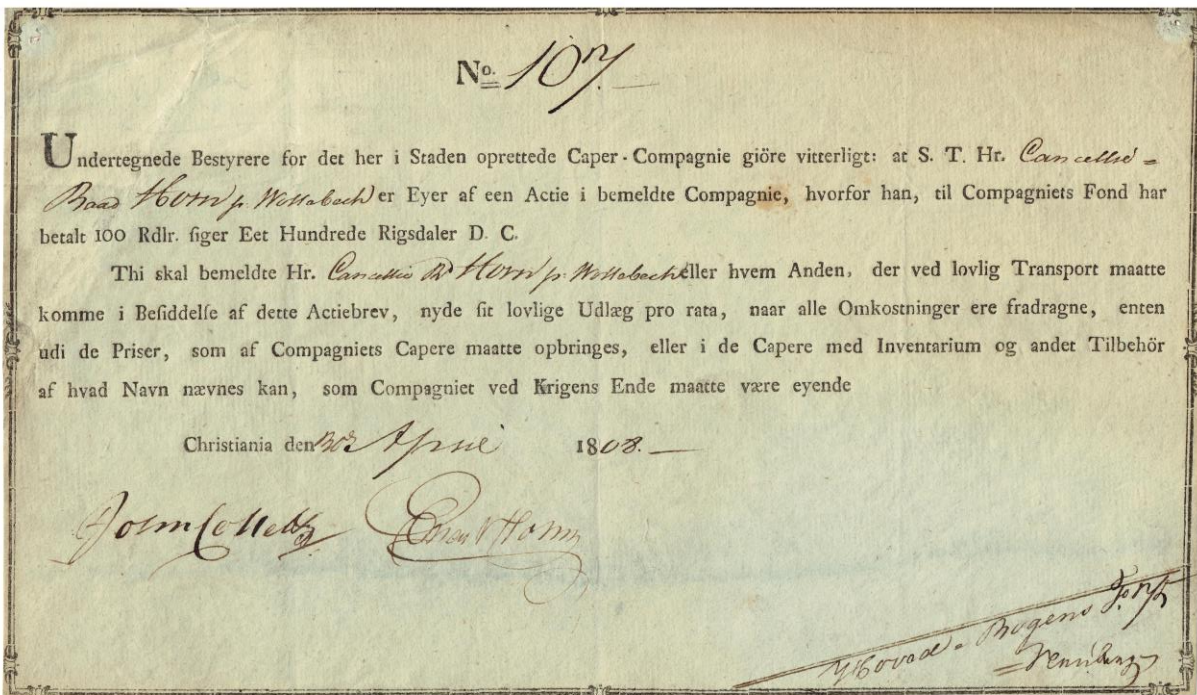 No. 107.
Undertegnede Bestyrere for det her i Staden oprettede Caper-Compagnie giöre vitterligt: at S. T. Hr. Cancellie=
Raad Horn p. Wollebech er Eyer af een Actie i bemeldte Compagnie, hvorfor han, til Compagniets Fond har
betalt 100 Rdlr. siger Eet Hundrede Rigsdaler D. C.
Thi skal bemeldte Hr. Cancellie Rd Horn p. Wollebech eller hvem Anden, der ved lovlig Transport maatte
komme i Besiddelse af dette Actiebrev, nyde sit lovlige Udlæg pro rata, naar alle Omkostninger ere fradragne, enten
udi de Priser, som af Compagniets Capere maatte opbringes, eller i de Capere med Inventarium og andet Tilbehör
af hvad Navn nævnes kan, som Compagniet ved Krigens Ende maatte være eyende
Christiania den April 1808.
John Collett
Hovad=Bogens